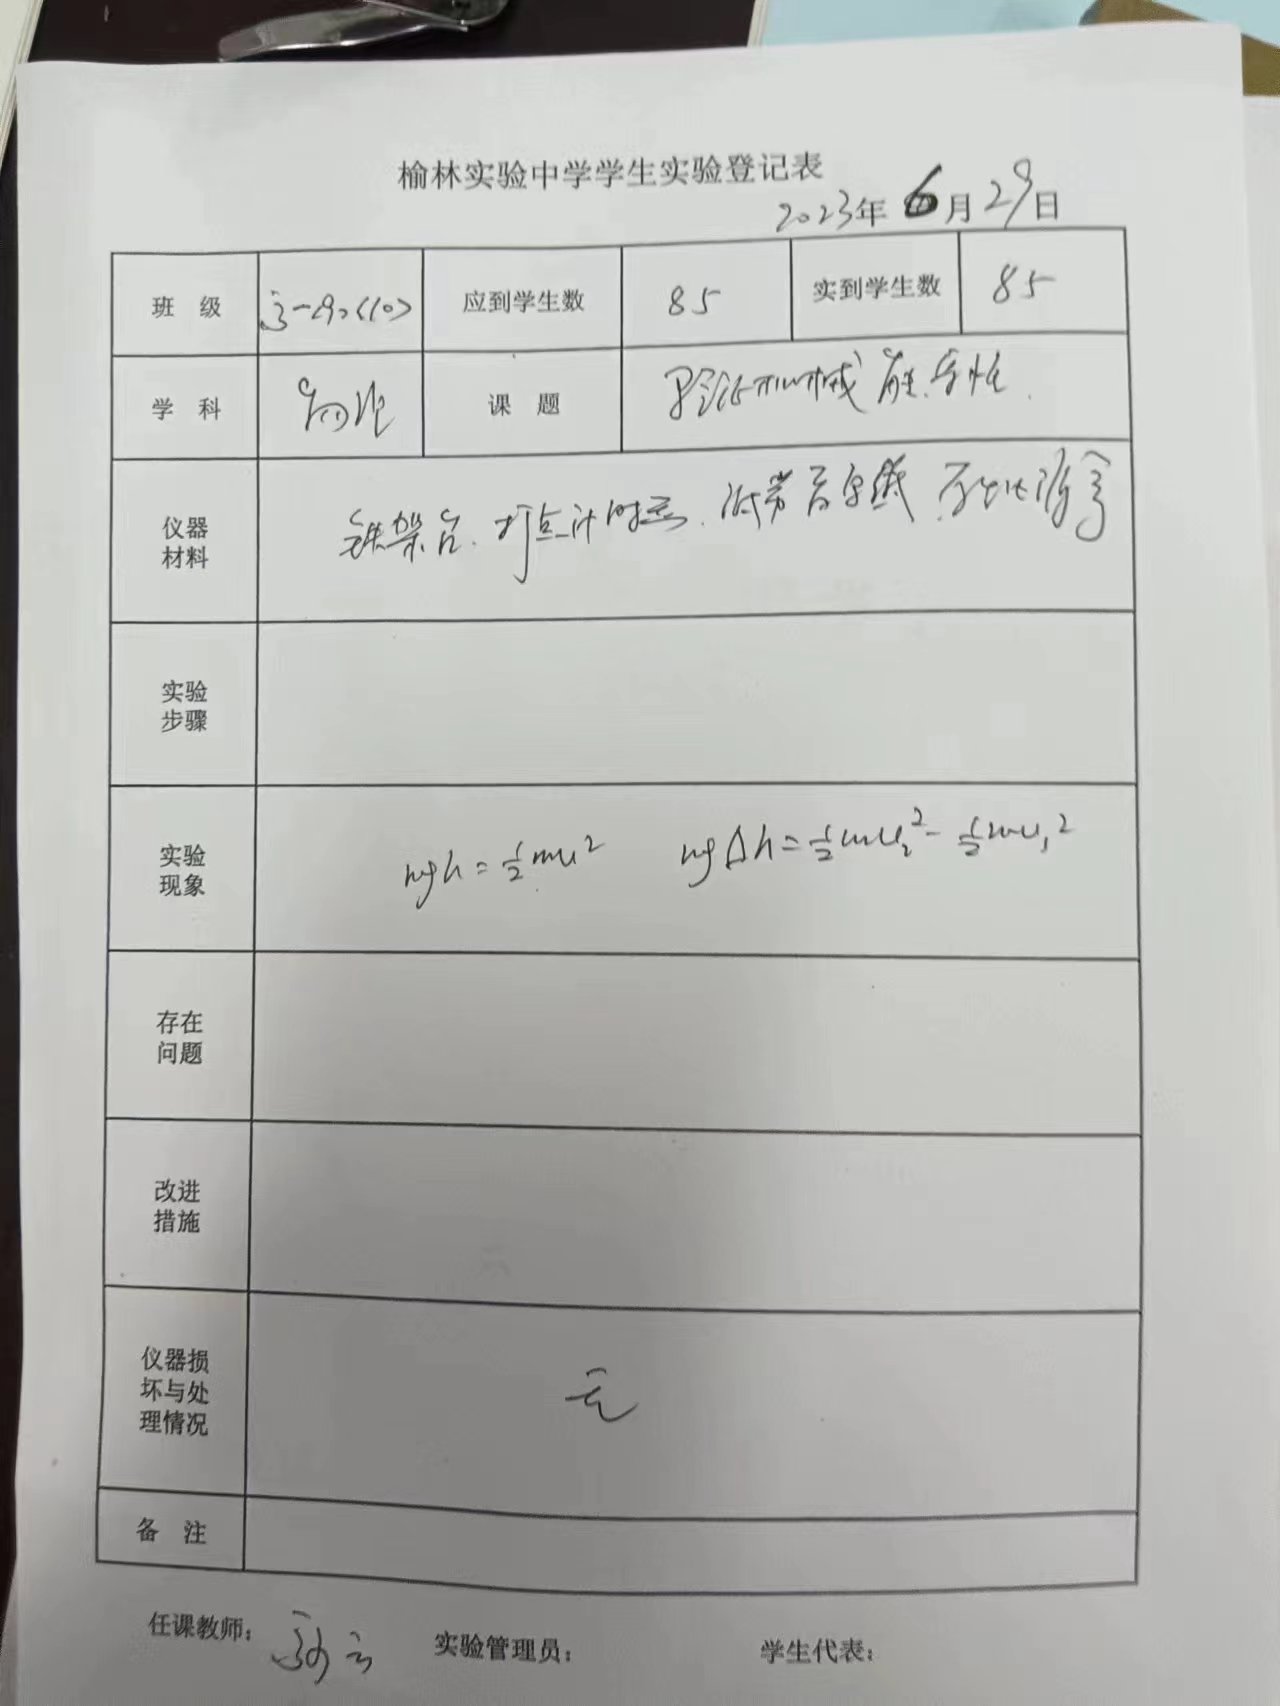 榆林实验中学学生实验登记表
2023年 6月29日
班 级 高一 (10) 应到学生数 85 实到学生数 85
学 科 物理 课 题 验证机械能守恒.
仪器材料 铁架台. 打点计时器. 纸带 复写纸
实验步骤
实验现象 mgh = ½mv² mgΔh = ½mv₂² - ½mv₁²
存在问题
改进措施
仪器损坏与处理情况 无
备 注
任课教师: 实验管理员: 学生代表: